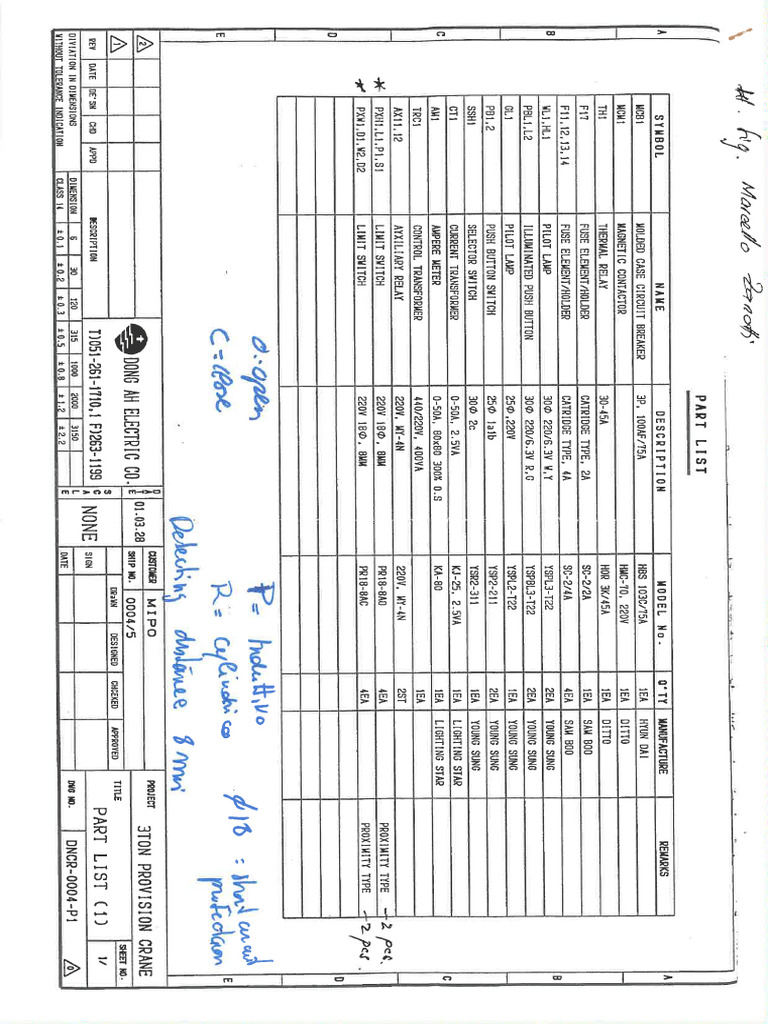 Marcello
PART LIST
SYMBOL NAME DESCRIPTION MODEL No. Q'TY MANUFACTURE REMARKS
MCB1 MOLDED CASE CIRCUIT BREAKER 3P, 100AF/75A HBS 103C/75A 1EA HYUN DAI
MCM1 MAGNETIC CONTACTOR HMC-70, 220V 1EA DITTO
TH1 THERMAL RELAY 30-45A HOR 3K/45A 1EA DITTO
F17 FUSE ELEMENT/HOLDER CATRIDGE TYPE, 2A SC-2/2A 1EA SAM BOO
F11,12,13,14 FUSE ELEMENT/HOLDER CATRIDGE TYPE, 4A SC-2/4A 4EA SAM BOO
WL1,HL1 PILOT LAMP 30Φ 220/6.3V W,Y YSPL3-T22 2EA YOUNG SUNG
PBL1,L2 ILLUMINATED PUSH BUTTON 30Φ 220/6.3V R,G YSPBL3-T22 2EA YOUNG SUNG
GL1 PILOT LAMP 25Φ,220V YSPL2-T22 1EA YOUNG SUNG
PB1,2 PUSH BUTTON SWITCH 25Φ 1a1b YSP2-211 2EA YOUNG SUNG
SSH1 SELECTOR SWITCH 30Φ 2c YSR2-311 1EA YOUNG SUNG
CT1 CURRENT TRANSFORMER 0-50A, 2.5VA KJ-25, 2.5VA 1EA LIGHTING STAR
AM1 AMPERE METER 0-50A, 80x80 300% O.S KA-80 1EA LIGHTING STAR
TRC1 CONTROL TRANSFORMER 440/220V, 400VA 1EA
AX11,12 AYXILIARY RELAY 220V, MY-4N 220V, MY-4N 2ST
* PXH1,L1,P1,S1 LIMIT SWITCH 220V 18Φ, 8MM PR18-8AO 4EA PROXIMITY TYPE — 2 pcs.
* PXW1,D1,W2,D2 LIMIT SWITCH 220V 18Φ, 8MM PR18-8AC 4EA PROXIMITY TYPE — 2 pcs.
O = open
C = close
P = Induttivo
R = cylindrico
ø18 = short circuit protection
Detecting distance 8 mm
A B C D E
A B C D E
2
1
REV DATE DE'SN CHD APPD DESCRIPTION
DIVIATION IN DIMENSIONS WITHOUT TOLERANCE INDICATION
DIMENSION 6 30 120 315 1000 2000 3150
CLASS 14 ±0.1 ±0.2 ±0.3 ±0.5 ±0.8 ±1.2 ±2.2
DONG AH ELECTRIC CO.
T)051-261-1710,1 F)263-1199
DATE 01.03.28
SCALE NONE
CUSTOMER MIPO
SHIP NO. 0004/5
DRAWN DESIGNED CHECKED APPROVED
SIGN
DATE
PROJECT 3TON PROVISION CRANE
TITLE PART LIST (1)
SHEET NO. 1/
DWG NO. DNCR-0004-P1
0